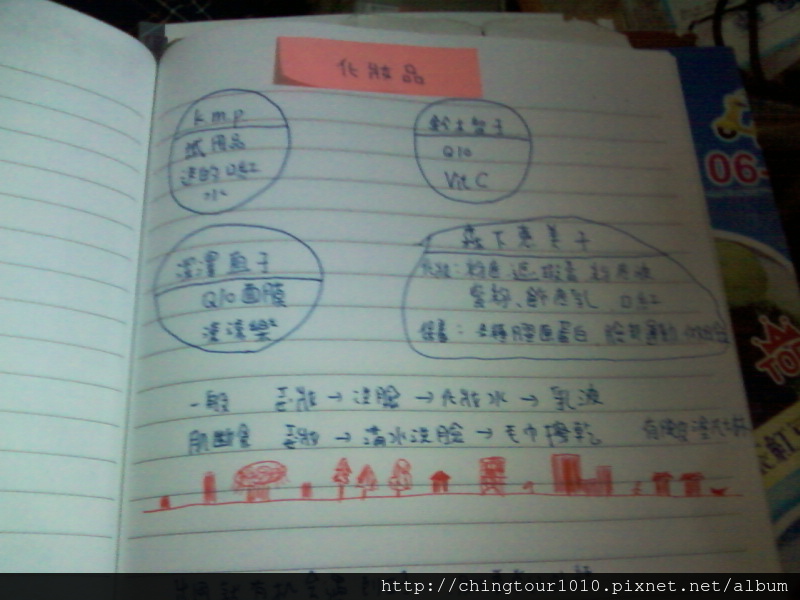 化妝品
kmp
試用品
送的口紅
水
鈴木智子
Q10
Vit C
深澤直子
Q10面膜
森下惠美子
化妝:粉底 遮瑕膏 粉底液
蜜粉、飾底乳 口紅
保養: 膠原蛋白 臉部運動
一般 卸妝→洗臉→化妝水→乳液
肌斷食 卸妝→清水洗臉→毛巾擦乾
06-
TO
http://chingtour1010.pixnet.net/album